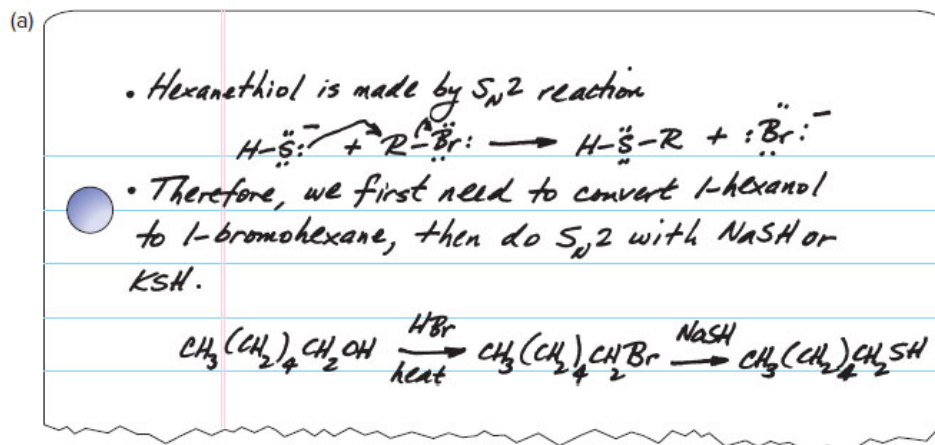 (a)
• Hexanethiol is made by SN2 reaction
H–S̈:⁻ + R–B̈r: ⟶ H–S̈–R + :B̈r:⁻
• Therefore, we first need to convert 1-hexanol
to 1-bromohexane, then do SN2 with NaSH or
KSH.
CH₃(CH₂)₄CH₂OH —HBr/heat→ CH₃(CH₂)₄CH₂Br —NaSH→ CH₃(CH₂)₄CH₂SH